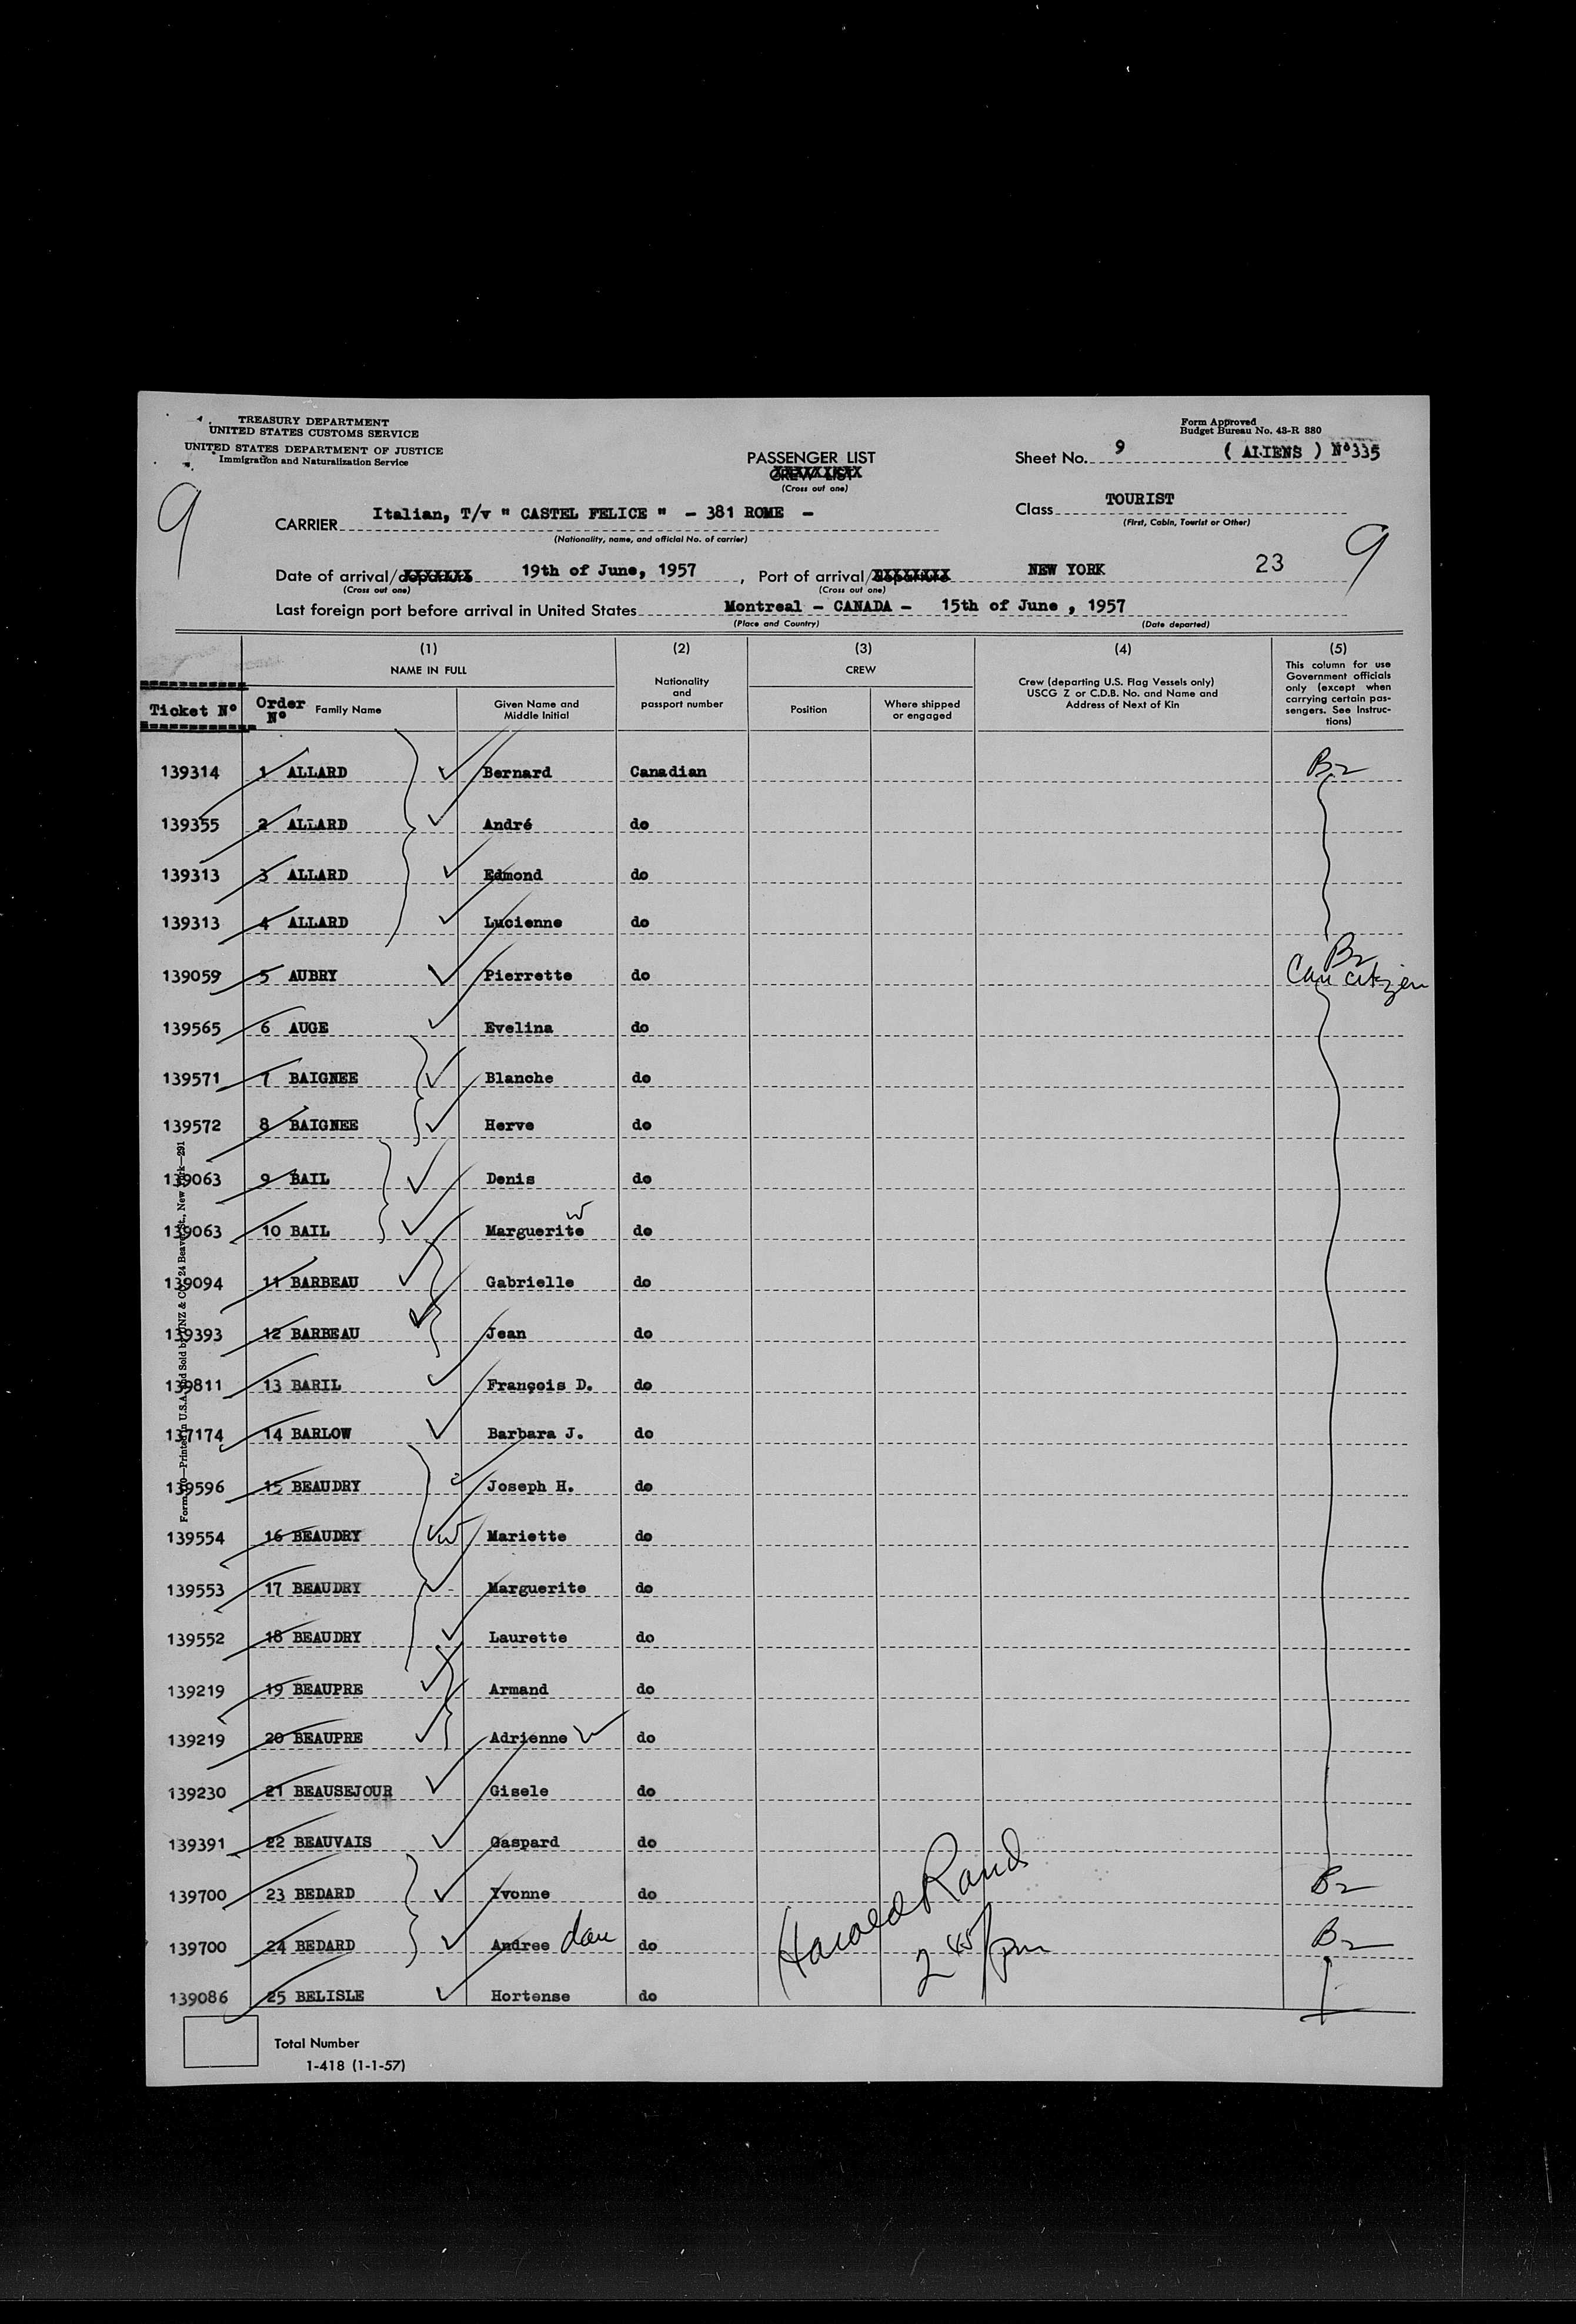 TREASURY DEPARTMENT
UNITED STATES CUSTOMS SERVICE
UNITED STATES DEPARTMENT OF JUSTICE
Immigration and Naturalization Service
Form Approved
Budget Bureau No. 43-R 380
PASSENGER LIST
CREW LIST
(Cross out one)
Sheet No. 9 ( ALIENS ) Nº335
9
CARRIER Italian, T/v " CASTEL FELICE " - 381 ROME -
(Nationality, name, and official No. of carrier)
Class TOURIST
(First, Cabin, Tourist or Other)
9
Date of arrival/departure 19th of June, 1957 , Port of arrival/departure NEW YORK 23
(Cross out one) (Cross out one)
Last foreign port before arrival in United States Montreal - CANADA - 15th of June , 1957
(Place and Country) (Date departed)
(1) (2) (3) (4) (5)
NAME IN FULL
Nationality and passport number
CREW
Crew (departing U.S. Flag Vessels only) USCG Z or C.D.B. No. and Name and Address of Next of Kin
This column for use Government officials only (except when carrying certain passengers. See Instructions)
Ticket Nº Order Nº Family Name Given Name and Middle Initial Position Where shipped or engaged
139314 1 ALLARD Bernard Canadian B2
139355 2 ALLARD André do
139313 3 ALLARD Edmond do
139313 4 ALLARD Lucienne do
139059 5 AUBRY Pierrette do B2 Can citizen
139565 6 AUGE Evelina do
139571 7 BAIGNEE Blanche do
139572 8 BAIGNEE Herve do
139063 9 BAIL Denis do
139063 10 BAIL Marguerite w do
139094 11 BARBEAU Gabrielle do
139393 12 BARBEAU Jean do
139811 13 BARIL François D. do
137174 14 BARLOW Barbara J. do
139596 15 BEAUDRY Joseph H. do
139554 16 BEAUDRY w Mariette do
139553 17 BEAUDRY Marguerite do
139552 18 BEAUDRY Laurette do
139219 19 BEAUPRE Armand do
139219 20 BEAUPRE Adrienne w do
139230 21 BEAUSEJOUR Gisele do
139391 22 BEAUVAIS Gaspard do
139700 23 BEDARD Yvonne do B2
139700 24 BEDARD Andree dau do B2
139086 25 BELISLE Hortense do
Harold Rand
2 45/pm
Total Number
1-418 (1-1-57)